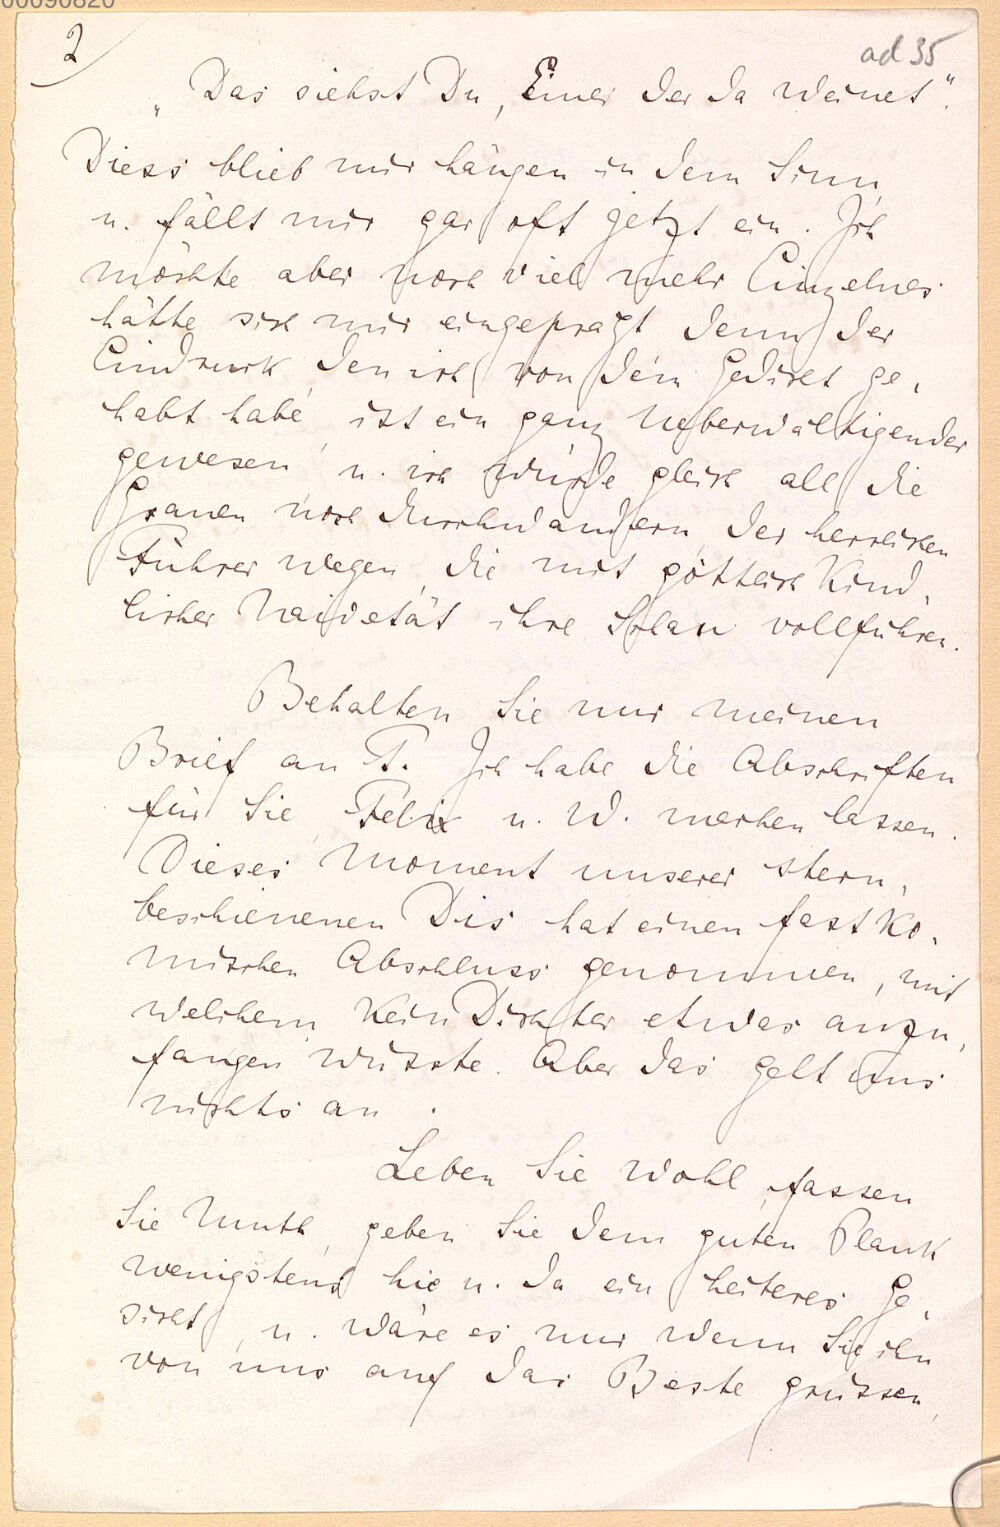 00090820
2
ad 35
"Das siehst Du, Einer der da weinet".
Diess blieb mir hängen in dem Sinn
u. fällt mir gar oft jetzt ein. Ich
möchte aber noch viel mehr Einzelnes
hätte sich mir eingeprägt denn der
Eindruck den ich von dem Gedicht ge,
habt habe, ist ein ganz Ueberwältigender
gewesen, u. ich würde gleich all die
Grauen noch durchwandern, der
Führer wegen, die mit göttlich Kind,
licher Naivetät ihre vollführen.
Behalten Sie nur meinen
Brief an F. Ich habe die Abschriften
für Sie, Felix u. W. machen lassen.
Dieses Moment unserer stern,
beschienenen Dis hat einen fast ko,
mischen Abschluss genommen, mit
welchem kein Dichter etwas anzu,
fangen wüsste. Aber das geht uns
nichts an.
Leben Sie wohl, fassen
Sie Muth, geben Sie dem guten Plank
wenigstens hie u. da ein heiteres Ge,
sicht, u. wäre es nur wenn Sie ihn
von uns auf das Beste grüssen,